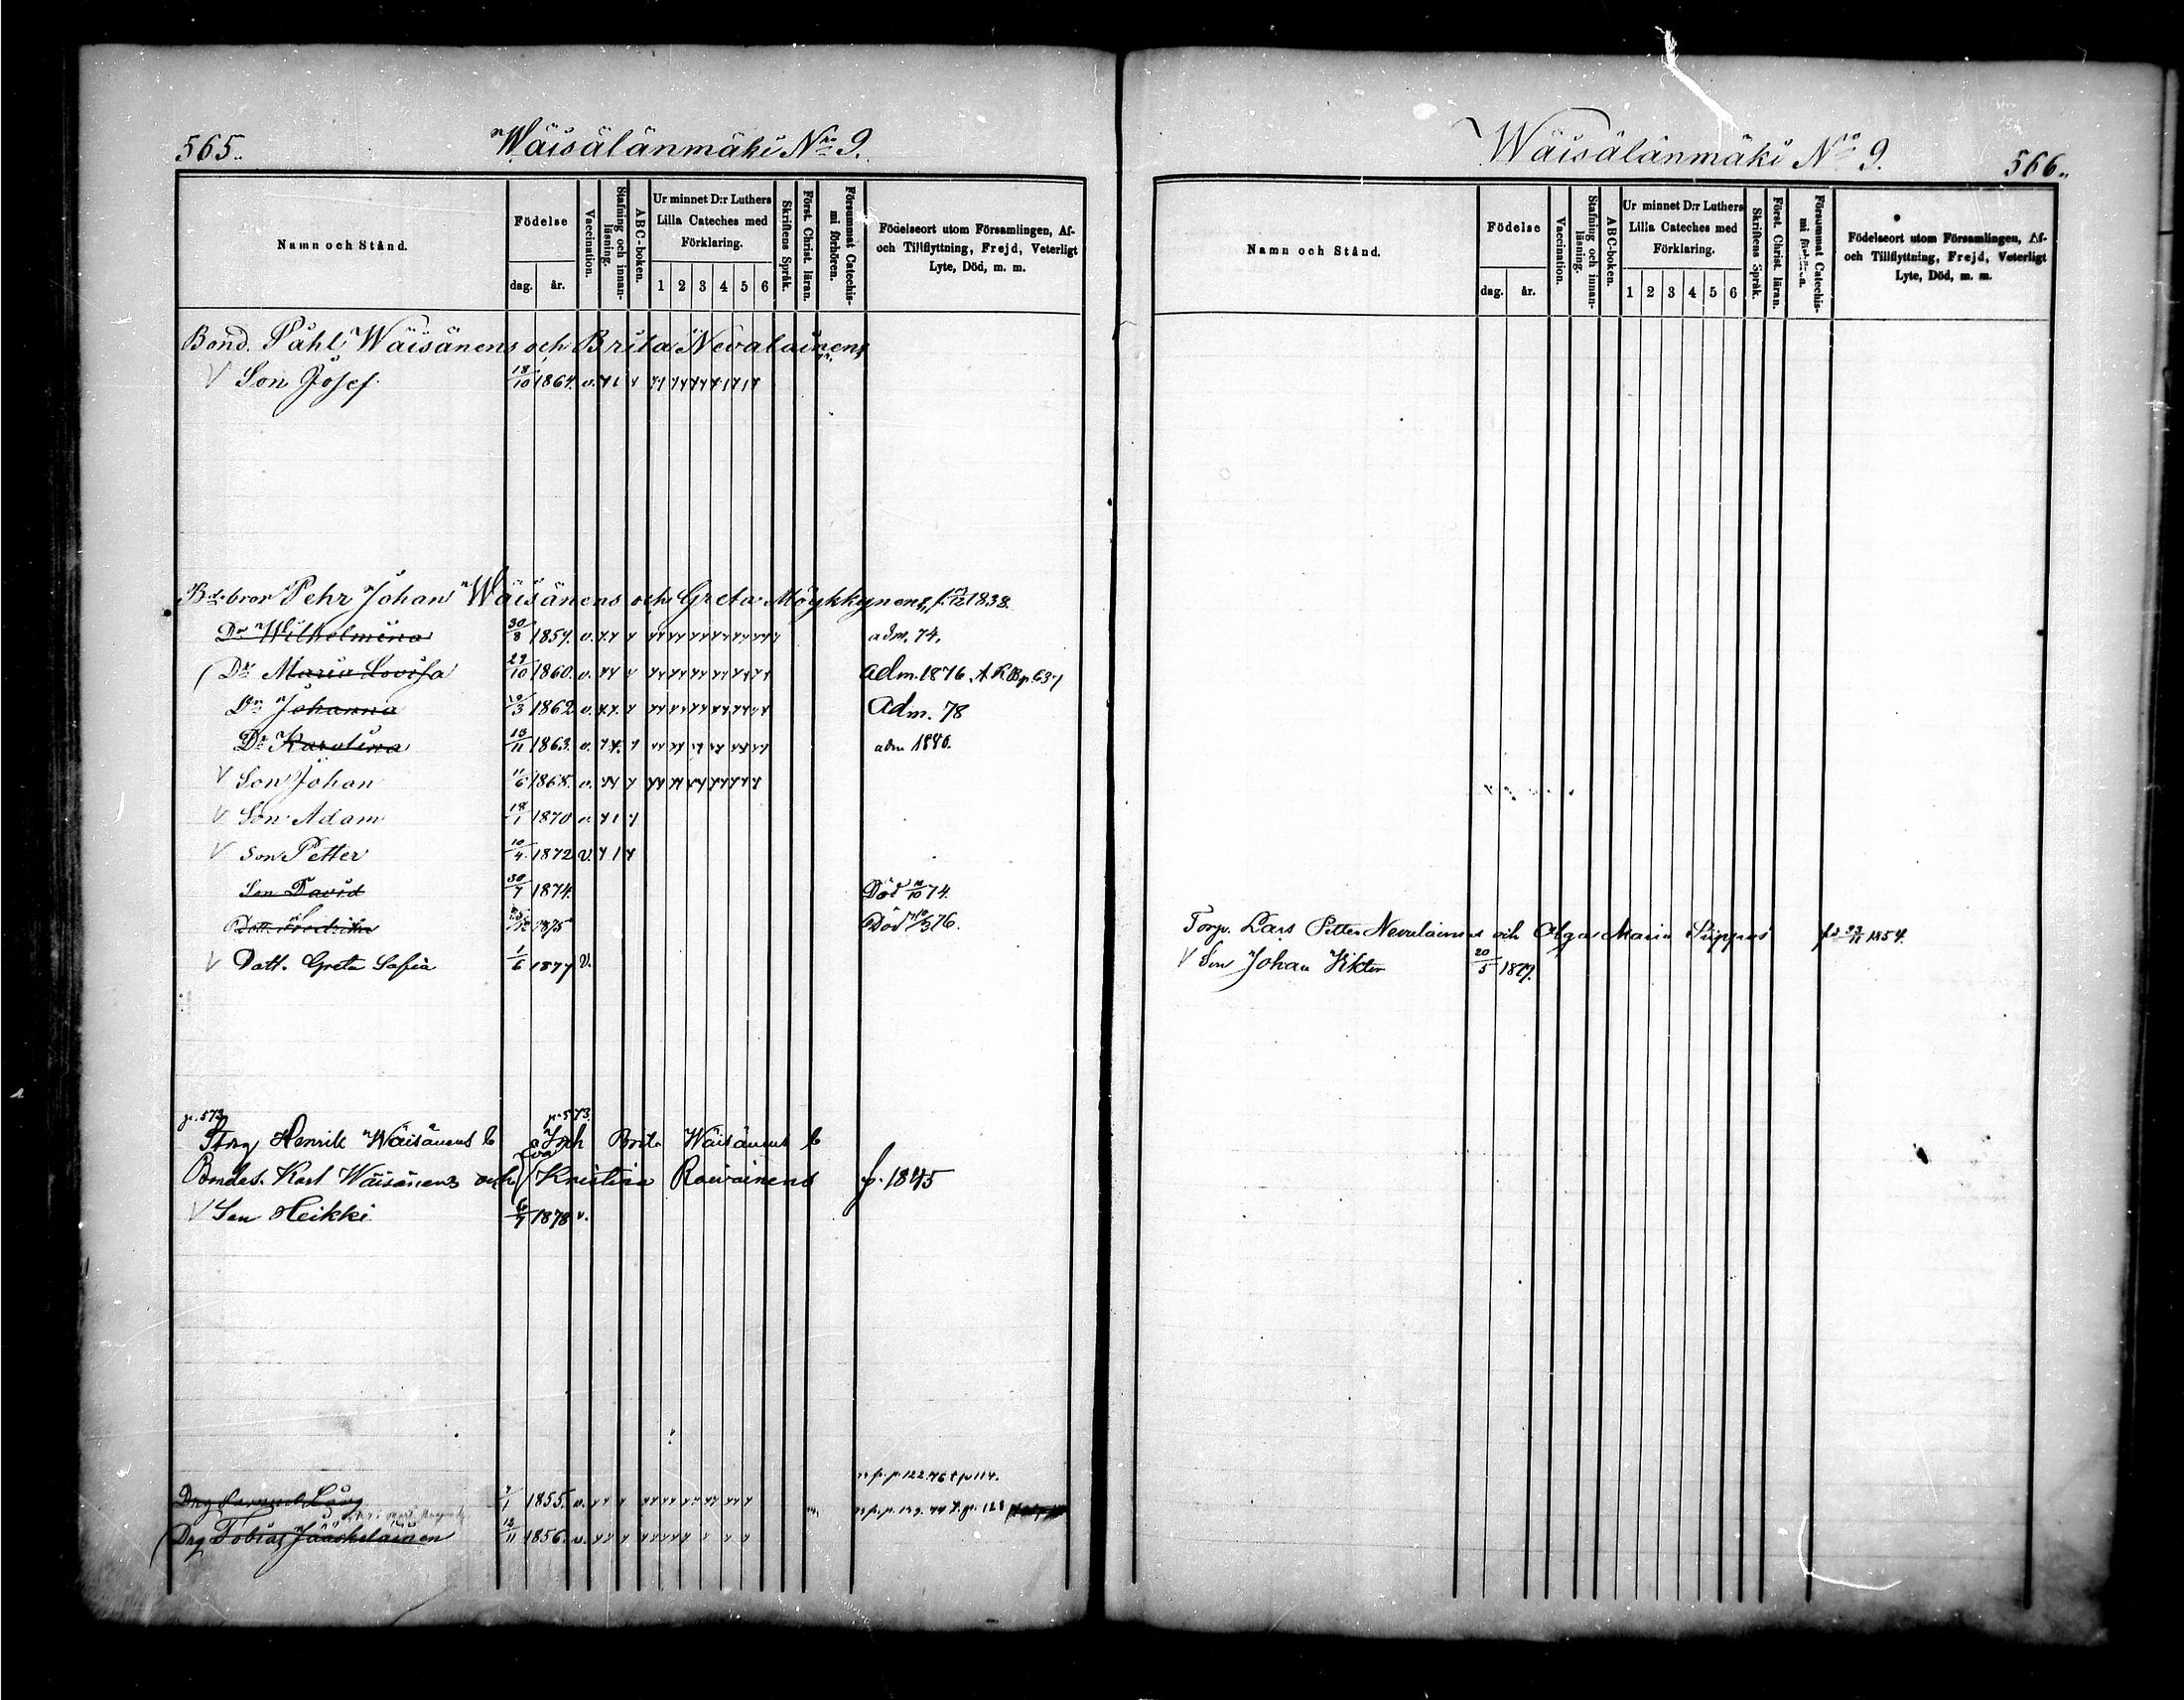 565.
Wäisälänmäki Nro 9.
Namn och Stånd.
Födelse
dag.
år.
Vaccination.
Stafning och innanläsning.
ABC-boken.
Ur minnet D:r Luthers
Lilla Cateches med
Förklaring.
1 2 3 4 5 6
Skriftens Språk.
Först. Christ. läran.
Försummat Catechismi förhören.
Födelseort utom Församlingen, Af-
och Tillflyttning, Frejd, Veterligt
Lyte, Död, m. m.
Bond. Påhl Wäisänens och Brita Nevalainens
V Son Josef 18/10 1864. v.
Bdebror Pehr Johan Wäisänens och Greta Möykkynens f. /12 1838.
Dr Wilhelmina 30/8 1857. v. adm. 74.
Dr Maria Lovisa 29/10 1860. v. adm. 1876.
Dr Johanna /3 1862 v. Adm. 78
Dr Karolina 13/11 1863. v. adm 1880.
V Son Johan 11/6 1868. v.
V Son Adam 18/1 1870 v.
V Son Petter 10/4 1872 v.
Son David 30/7 1874. Död /10 74.
Dott. Fredrika /12 1875 Död /3 76.
V Dott. Greta Sofia 1/6 1877 V.
p. 573 p. 573.
Henrik Wäisänens b Brita Wäisänens b
Bondes. Karl Wäisänens och Kristina f. 1845
V Son Heikki 6/7 1878 v.
p. 122. 76 p 114.
Drg 1855. v.
Drg Tobias Jääskeläinen 12/11 1856. v.
Wäisälänmäki Nro 9.
566.
Namn och Stånd.
Födelse
dag.
år.
Vaccination.
Stafning och innanläsning.
ABC-boken.
Ur minnet D:r Luthers
Lilla Cateches med
Förklaring.
1 2 3 4 5 6
Skriftens Språk.
Först. Christ. läran.
Försummat Catechismi förhören.
Födelseort utom Församlingen, Af-
och Tillflyttning, Frejd, Veterligt
Lyte, Död, m. m.
Torp. Lars Petter Nevalainens och Olga Maria 1854.
V Son Johan Viktor 20/5 1879.